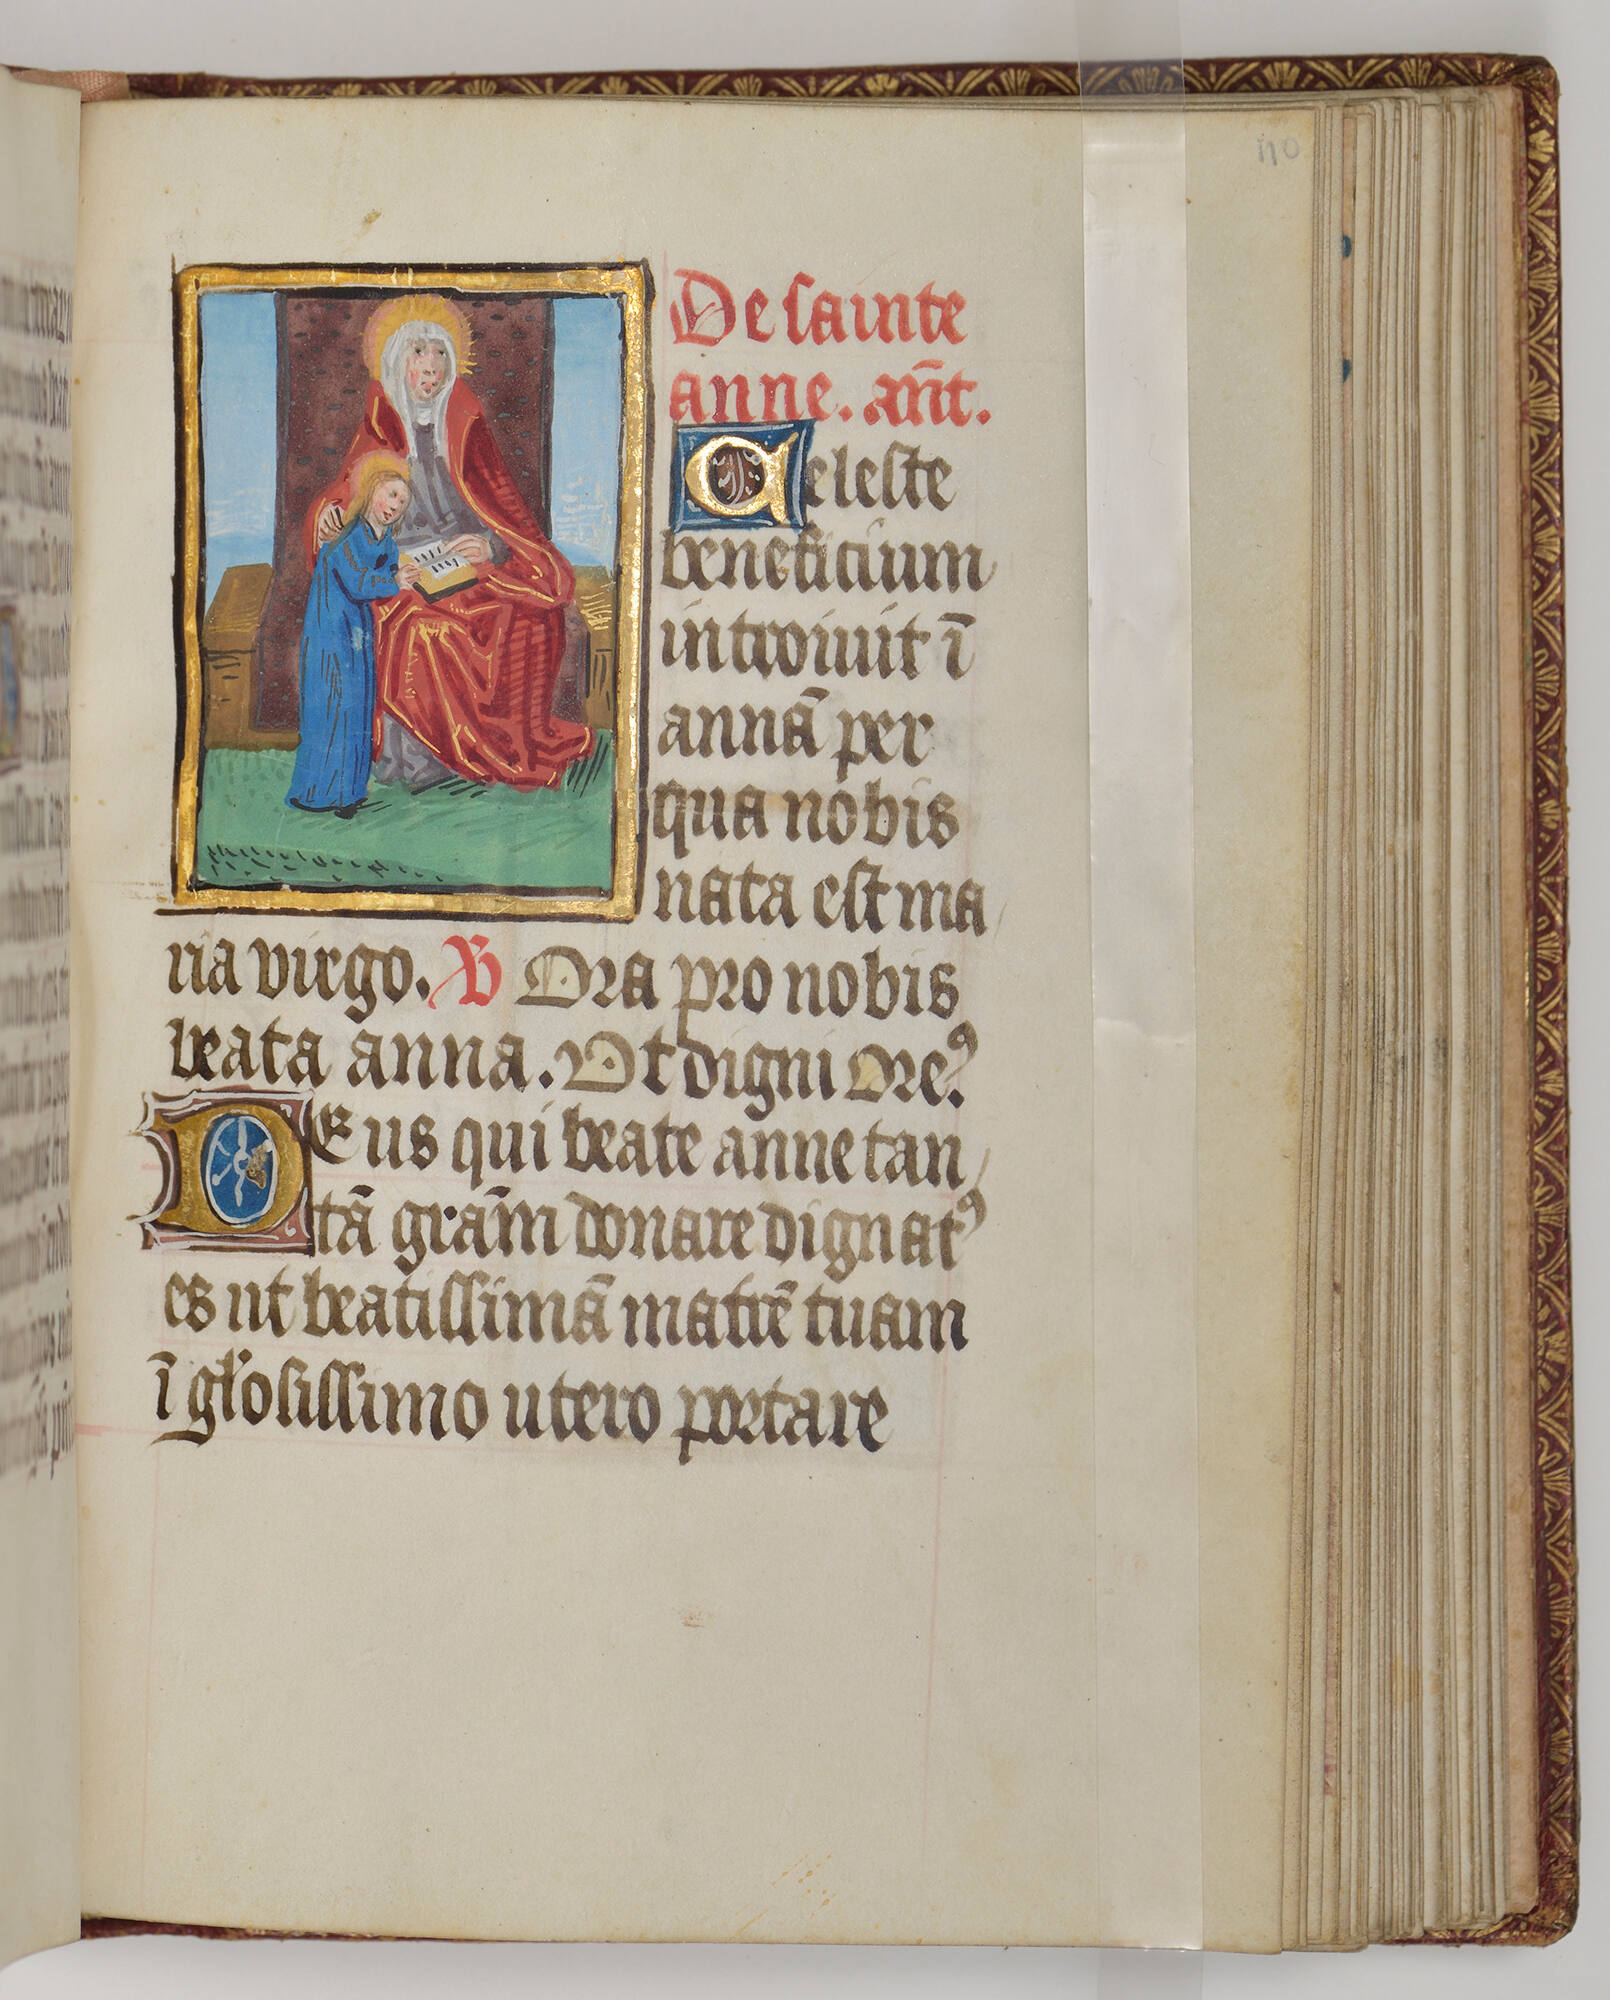 110
De sainte
anne. an̄t.
Celeste
beneficium
introiuit ī
annā per
qua nobis
nata est ma
ria virgo. ℣ Ora pro nobis
beata anna. Vt digni oreꝰ.
DEus qui beate anne tan
tā grām donare dignatꝰ
es ut beatissimā matrē tuam
ī gl̄osissimo utero portare